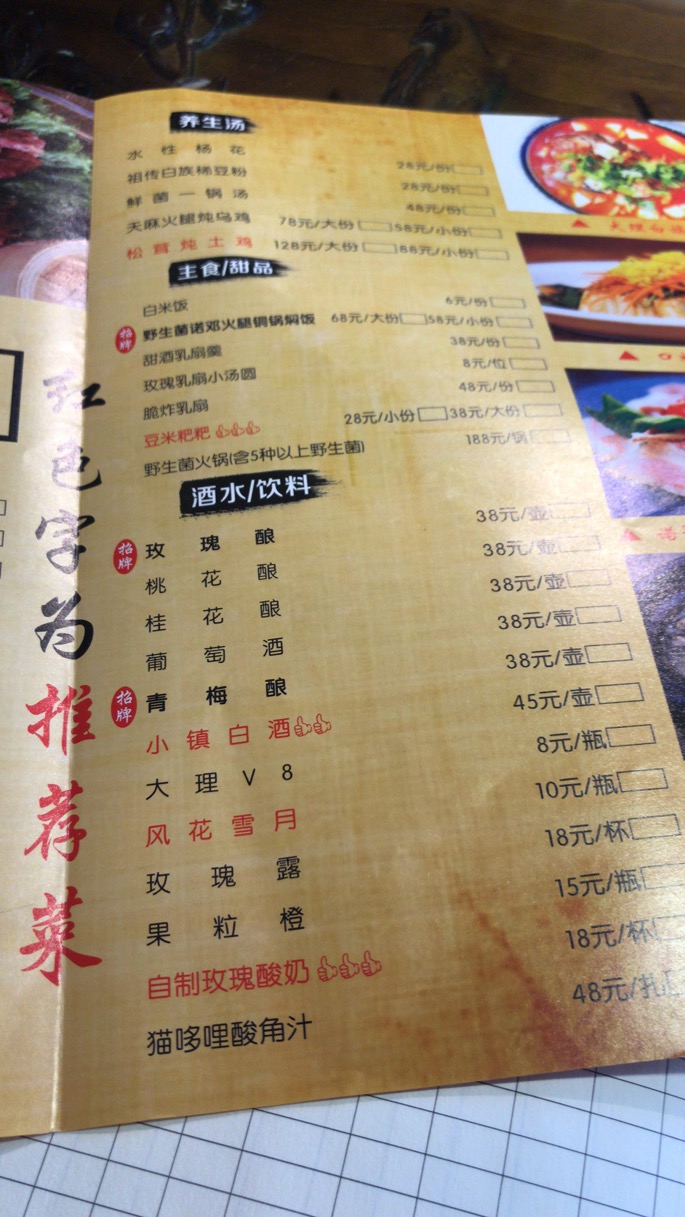 养生汤
水性杨花 28元/份
祖传白族稀豆粉 28元/份
鲜菌一锅汤 48元/份
天麻火腿炖乌鸡 78元/大份 58元/小份
松茸炖土鸡 128元/大份 88元/小份
主食/甜品
白米饭 6元/份
招牌 野生菌诺邓火腿铜锅焖饭 68元/大份 58元/小份
甜酒乳扇羹 38元/份
玫瑰乳扇小汤圆 8元/位
脆炸乳扇 48元/份
豆米粑粑 28元/小份 38元/大份
野生菌火锅(含5种以上野生菌) 188元/锅
酒水/饮料
招牌 玫瑰酿 38元/壶
桃花酿 38元/壶
桂花酿 38元/壶
葡萄酒 38元/壶
招牌 青梅酿 38元/壶
小镇白酒 45元/壶
大理V8 8元/瓶
风花雪月 10元/瓶
玫瑰露 18元/杯
果粒橙 15元/瓶
自制玫瑰酸奶 18元/杯
猫哆哩酸角汁 48元/扎
红色字为推荐菜
大理白族